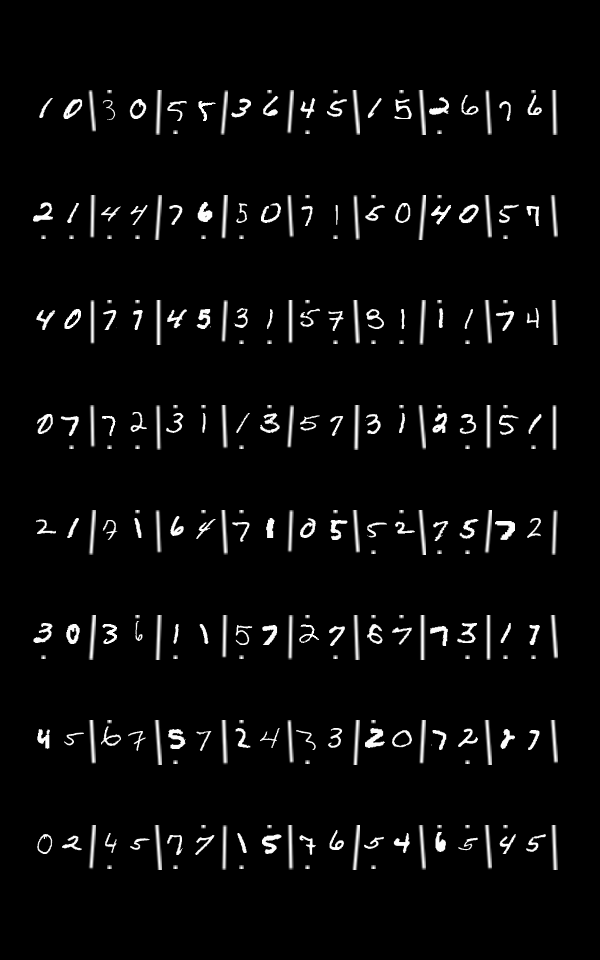 1 0 | 3 0 | 5 5 | 3 6 | 4 5 | 1 5 | 2 6 | 7 6 |
2 1 | 4 4 | 7 6 | 5 0 | 7 1 | 5 0 | 4 0 | 5 7 |
4 0 | 7 7 | 4 5 | 3 1 | 5 7 | 3 1 | 1 1 | 7 4 |
0 7 | 7 2 | 3 1 | 1 3 | 5 7 | 3 1 | 2 3 | 5 1 |
2 1 | 7 1 | 6 4 | 7 1 | 0 5 | 5 2 | 7 5 | 7 2 |
3 0 | 3 6 | 1 1 | 5 7 | 2 7 | 6 7 | 7 3 | 1 7 |
4 5 | 6 7 | 5 7 | 2 4 | 3 3 | 2 0 | 7 2 | 2 7 |
0 2 | 4 5 | 7 7 | 1 5 | 7 6 | 5 4 | 6 5 | 4 5 |